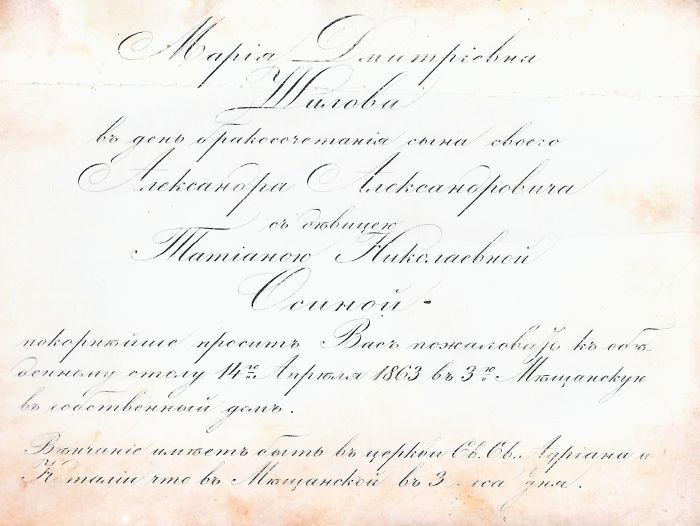 Марія Дмитріевна
Шилова
въ день бракосочетанія сына своего
Александра Александровича
съ дѣвицею
Татіаною Николаевной
Осиной
покорнѣйше проситъ Васъ пожаловать къ обѣ-
денному столу 14го Апрѣля 1863 въ 3ю Мѣщанскую
въ собственный домъ.
Вѣнчаніе имѣетъ быть въ церкви Св. Св. Адріана и
Наталіи что въ Мѣщанской въ 3 часа дня.